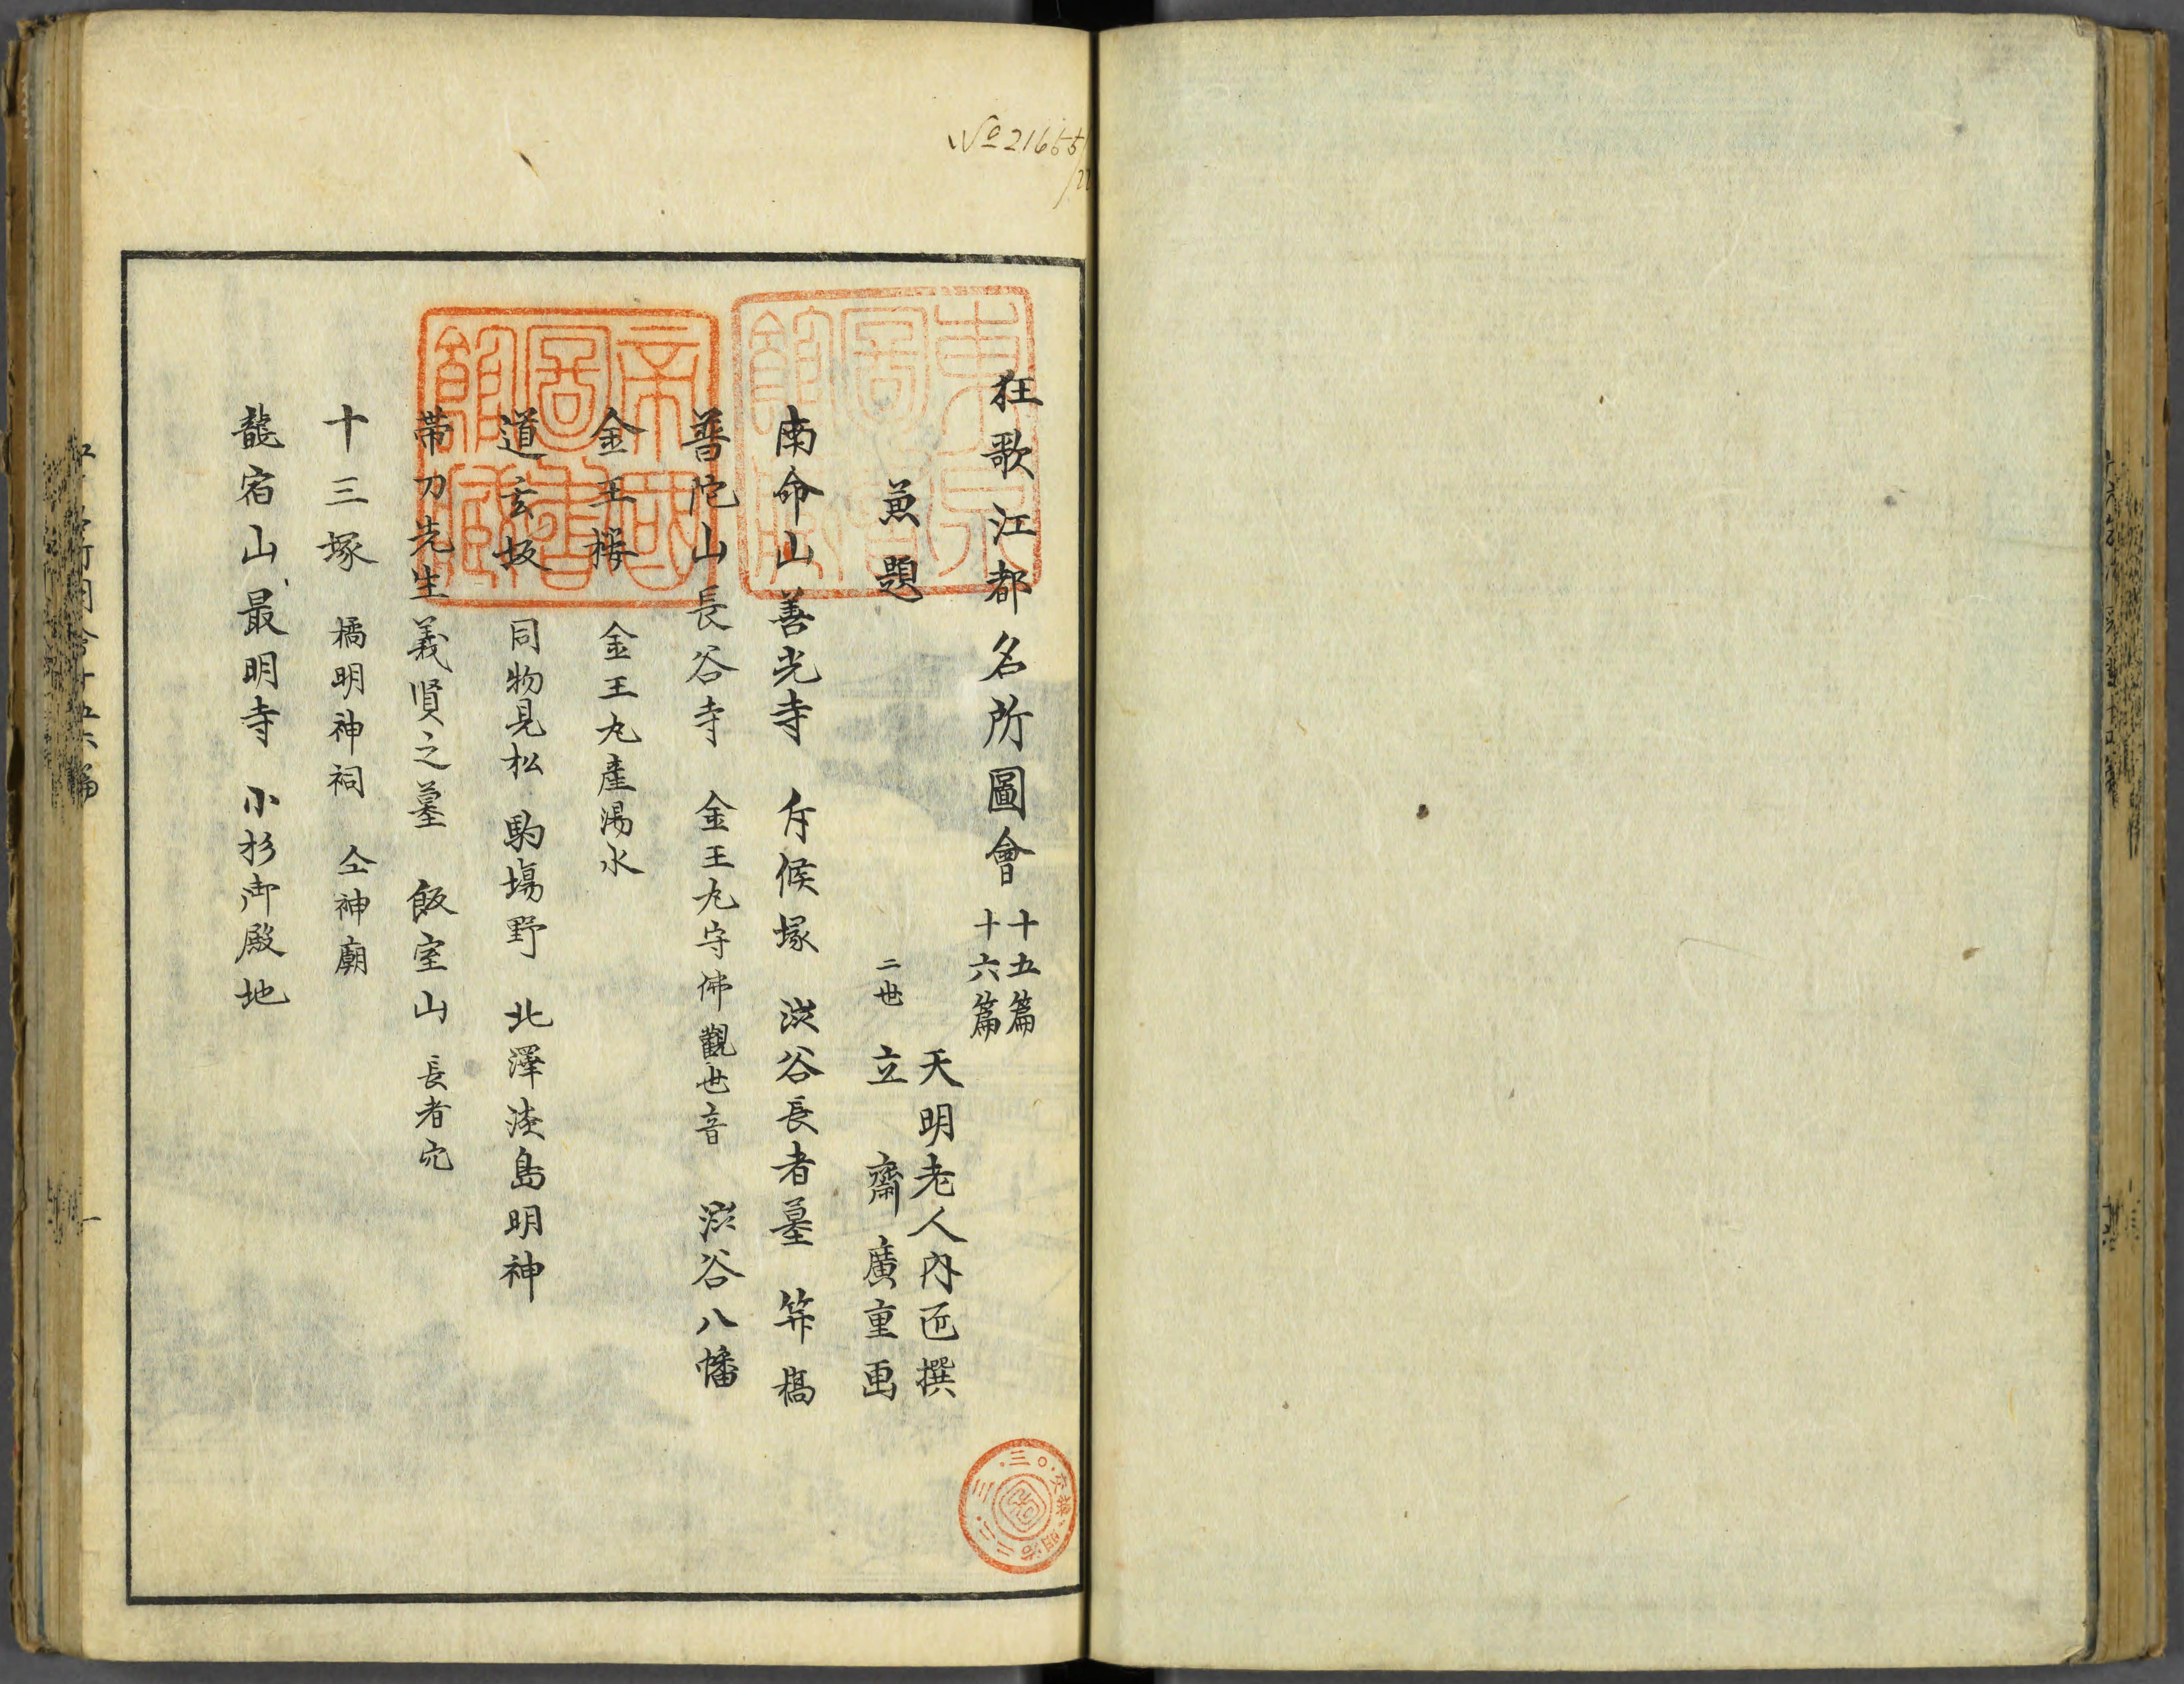 狂歌江都名所圖會 十五篇 十六篇
天明老人内匠撰
二世 立齋廣重画
兼題
南命山善光寺 斥候塚 渋谷長者墓 笄橋
普陀山長谷寺 金王丸守佛觀世音 渋谷八幡
金王桜 金王丸産湯水
道玄坂 同物見松 駒場野 北澤淡島明神
帯刀先生義賢之墓 飯室山 長者穴
十三塚 橘明神祠 仝神廟
龍宿山最明寺 小杉御殿地
東京圖書館藏
帝國圖書館藏
図 明治三三・三・三〇・交換
No 21655